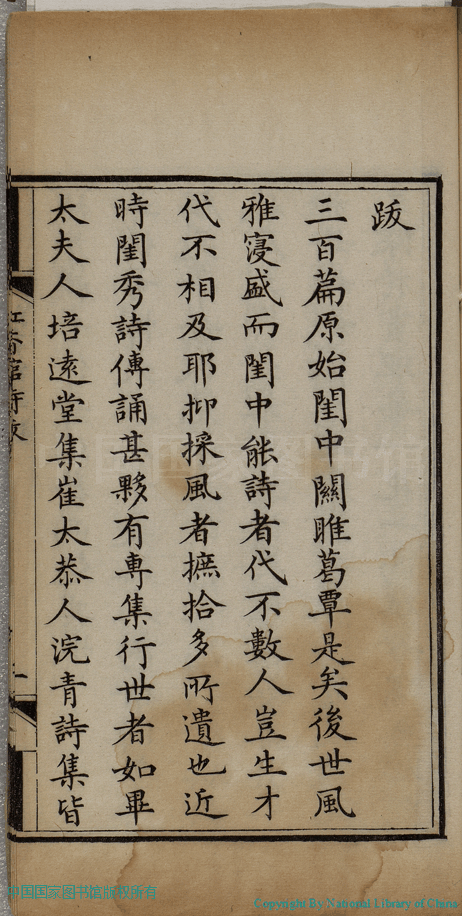 跋
三百篇原始閨中關雎葛覃是矣後世風
雅寖盛而閨中能詩者代不數人豈生才
代不相及耶抑採風者摭拾多所遺也近
時閨秀詩傳誦甚夥有専集行世者如畢
太夫人培遠堂集崔太恭人浣青詩集皆
中国国家图书馆
中国国家图书馆版权所有
Copyright By National Library of China